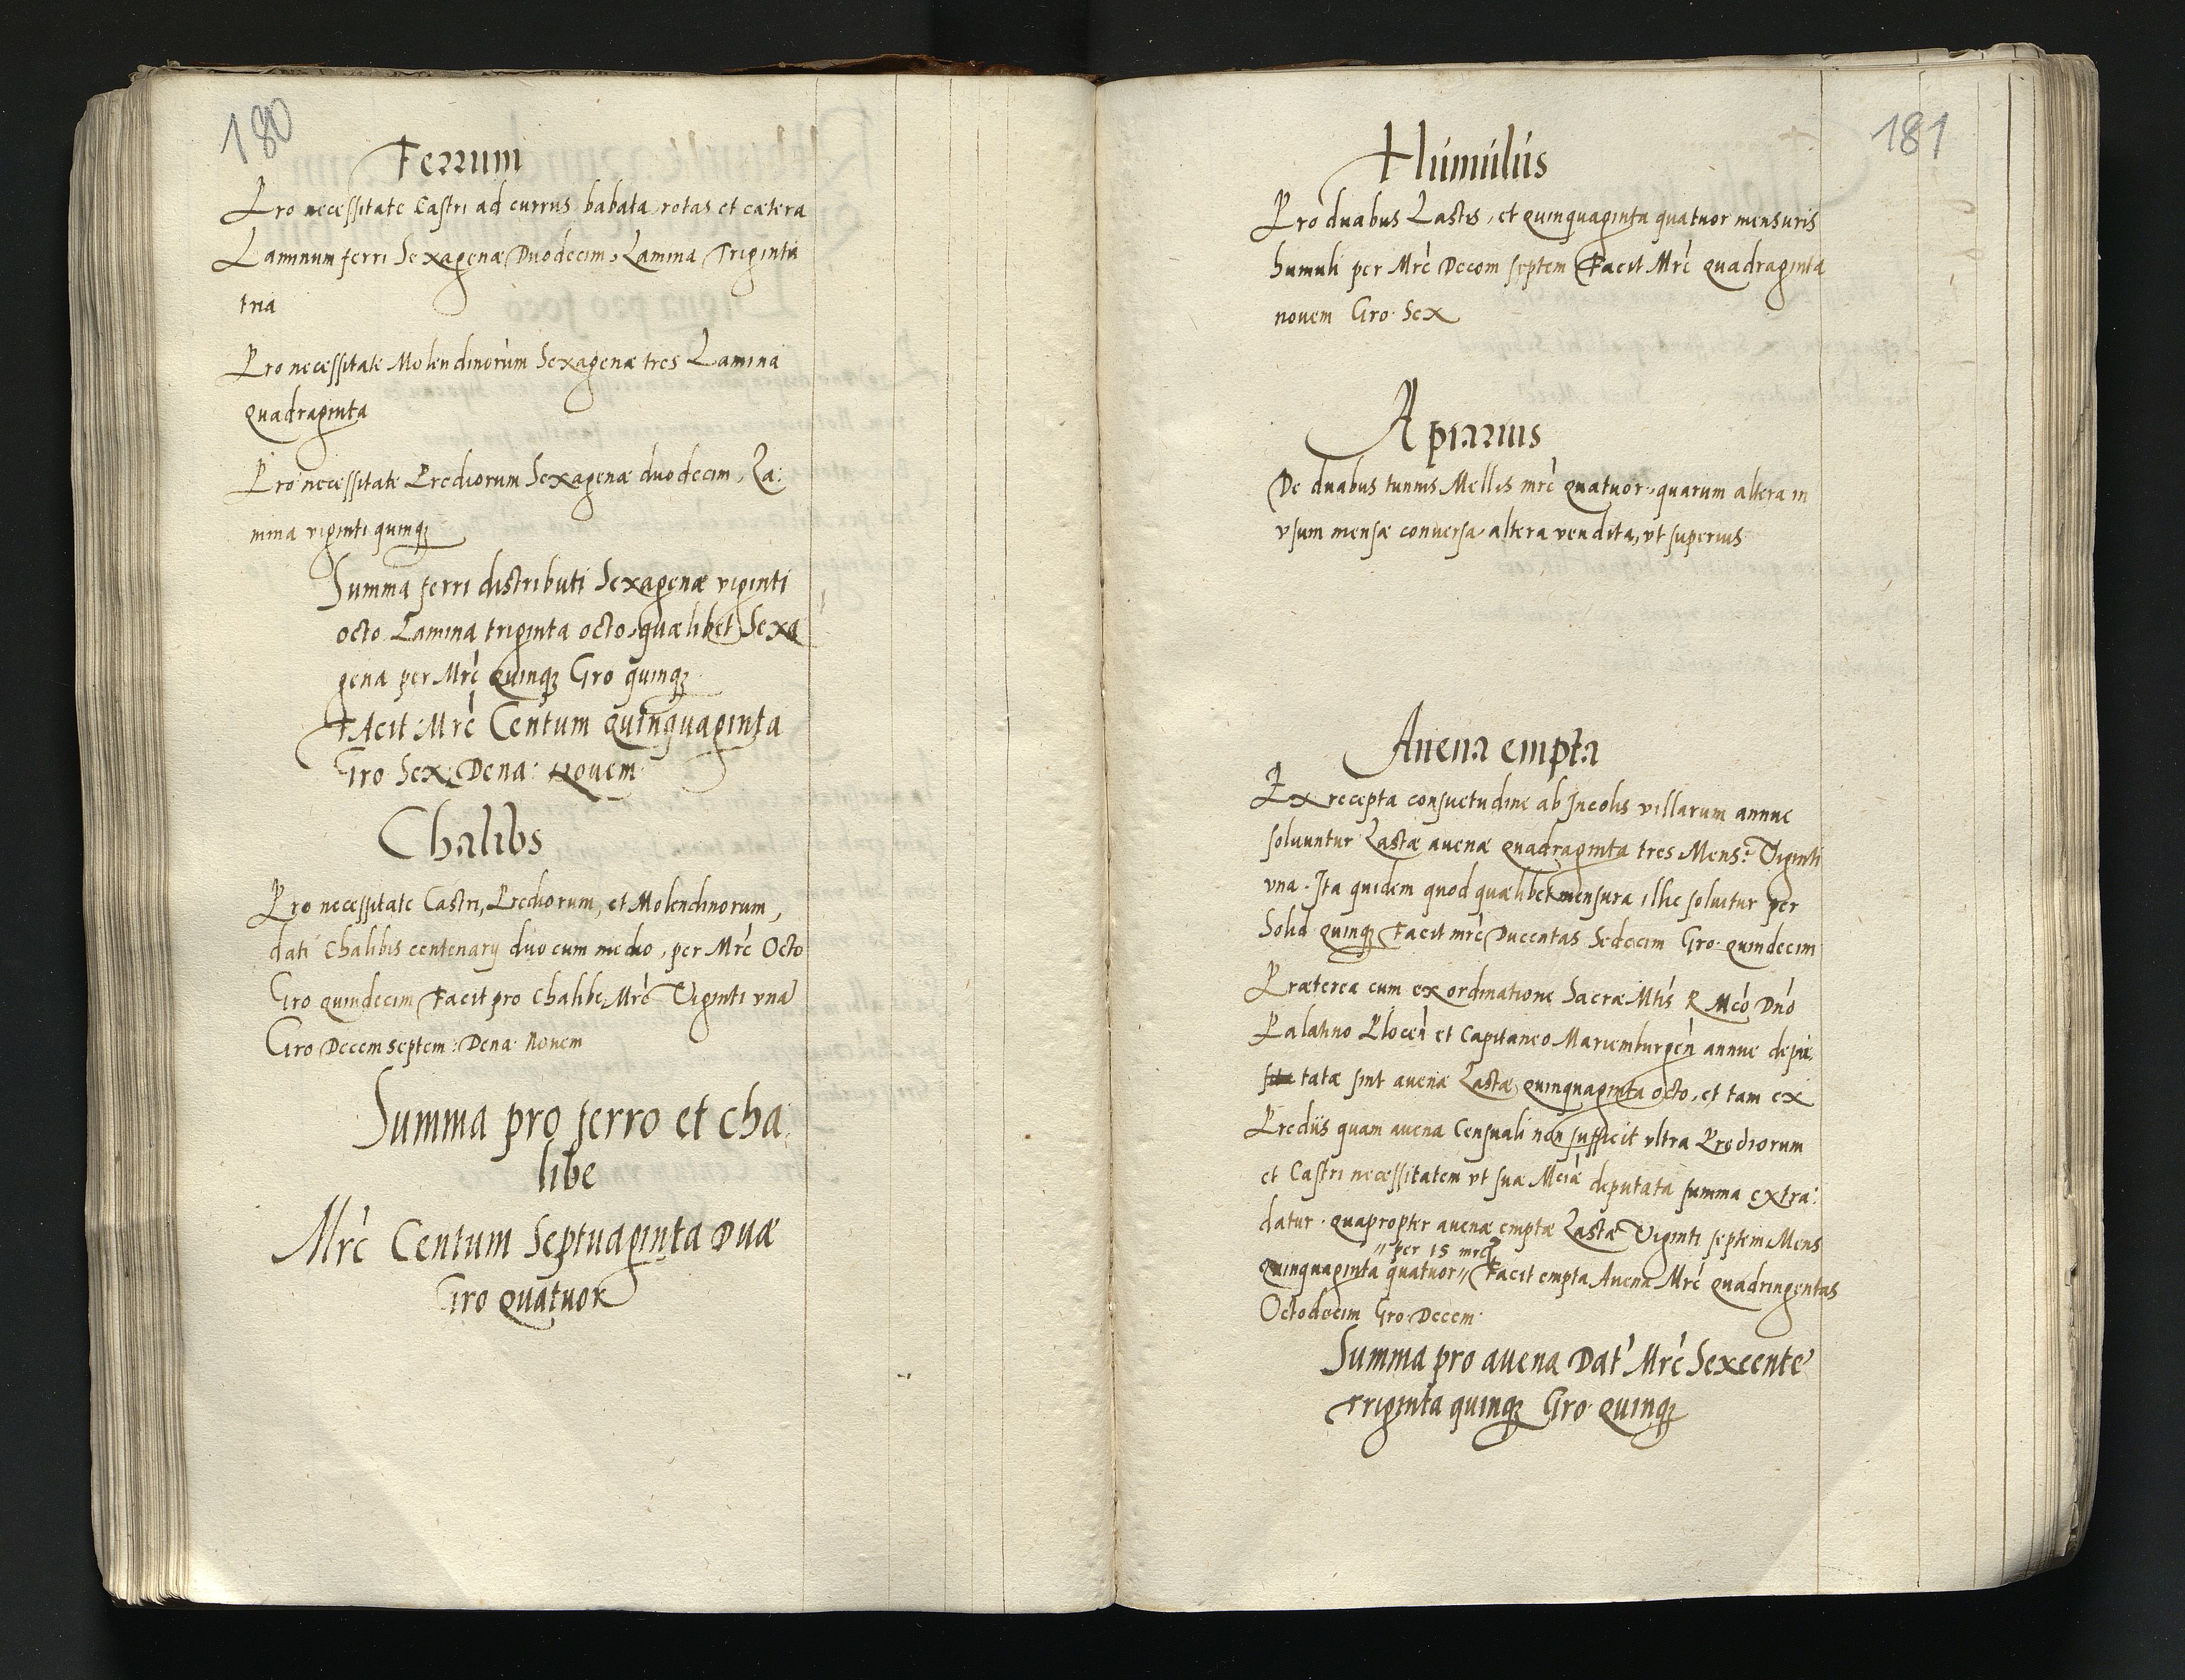 180
Ferrum
Pro necessitate Castri ad currus babata rotas et cætera
Laminum ferri Sexagenæ Duodecim, Lamina Triginta
tria
Pro necessitate Molendinorum Sexagenæ tres Lamina
quadraginta
Pro necessitate Prediorum Sexagenæ duodecim, La:
mina viginti quinqꝫ
Summa ferri distributi Sexagenæ viginti
octo Lamina triginta octo, quælibet Sexa
gena per Mrć quinqꝫ Gro quinqꝫ
FAcit Mrć Centum quinquaginta
Gro Sex: Dena: Novem
Chalibs
Pro necessitate Castri, Prediorum, et Molendinorum,
dati Chalibis centenarij duo cum medio, per Mrć Octo
Gro quindecim Facit pro Chalibe Mrć Viginti vna
Gro Decem septem: Dena: Novem
Summa pro ferro et cha.
libe
Mrć Centum Septuaginta Duæ
Gro quatuor
181
Humulus
Pro duabus Lastis, et quinquaginta quatuor mensuris
humuli per Mrć Decem septem Facit Mrć quadraginta
novem Gro. Sex
Apiarius
De duabus tunnis Mellis mrć quatuor, quarum altera in
vsum mensæ conversa altera vendita, vt superius
Auena empta
Ex recepta consuetudine ab Jncolis villarum annue
soluuntur Lastæ auenæ quadraginta tres Mens: Viginti
vna. Jta quidem quod quælibet mensura illic soluitur per
Solid quinqꝫ Facit mrć Ducentas Sedecim Gro. quindecim
Præterea cum ex ordinatione Sacræ Mtis R Mćo Dńo
Palatino Plocen̄ et Capitaneo Mariemburgen̄ annue depu.
tatæ sint auenæ Lastæ quinquaginta octo, et tam ex
Prediis quam auena Censuali non sufficit vltra Prediorum
et Castri necessitatem vt suæ Mciæ deputata summa extra:
datur. quapropter auenæ emptæ Lastæ Viginti septem Mens
// per 15 mrcꝭ
quinquaginta quatuor // Facit empta Auena Mrć quadringentas
Octodecim Gro. Decem.
Summa pro auena Dat' Mrć Sexcente
Triginta quinqꝫ Gro. quinqꝫ